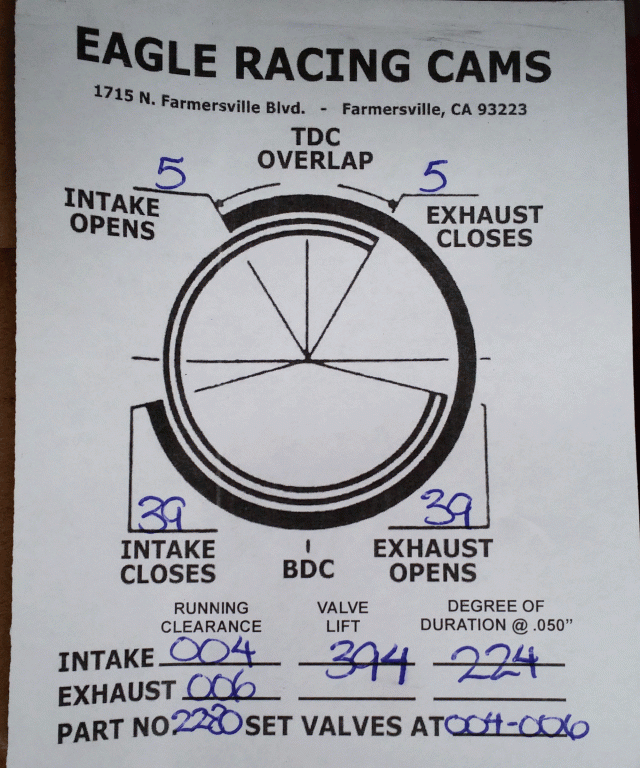 EAGLE RACING CAMS
1715 N. Farmersville Blvd. - Farmersville, CA 93223
TDC
OVERLAP
5
INTAKE
OPENS
5
EXHAUST
CLOSES
39
INTAKE
CLOSES
BDC
39
EXHAUST
OPENS
RUNNING
CLEARANCE
VALVE
LIFT
DEGREE OF
DURATION @ .050"
INTAKE 004 394 224
EXHAUST 006
PART NO. 2280 SET VALVES AT 004-006